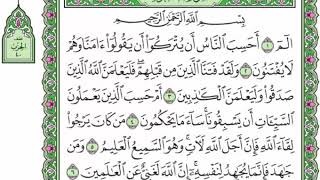 بِسْمِ اللَّهِ الرَّحْمَٰنِ الرَّحِيمِ
الٓمٓ ١ أَحَسِبَ النَّاسُ أَن يُتْرَكُوٓا۟ أَن يَقُولُوٓا۟ ءَامَنَّا وَهُمْ
لَا يُفْتَنُونَ ٢ وَلَقَدْ فَتَنَّا الَّذِينَ مِن قَبْلِهِمْ فَلَيَعْلَمَنَّ اللَّهُ الَّذِينَ
صَدَقُوا۟ وَلَيَعْلَمَنَّ الْكَٰذِبِينَ ٣ أَمْ حَسِبَ الَّذِينَ يَعْمَلُونَ
السَّيِّـَٔاتِ أَن يَسْبِقُونَا سَآءَ مَا يَحْكُمُونَ ٤ مَن كَانَ يَرْجُوا۟
لِقَآءَ اللَّهِ فَإِنَّ أَجَلَ اللَّهِ لَـَٔاتٍ وَهُوَ السَّمِيعُ الْعَلِيمُ ٥ وَمَن
جَٰهَدَ فَإِنَّمَا يُجَٰهِدُ لِنَفْسِهِۦٓ إِنَّ اللَّهَ لَغَنِىٌّ عَنِ الْعَٰلَمِينَ ٦